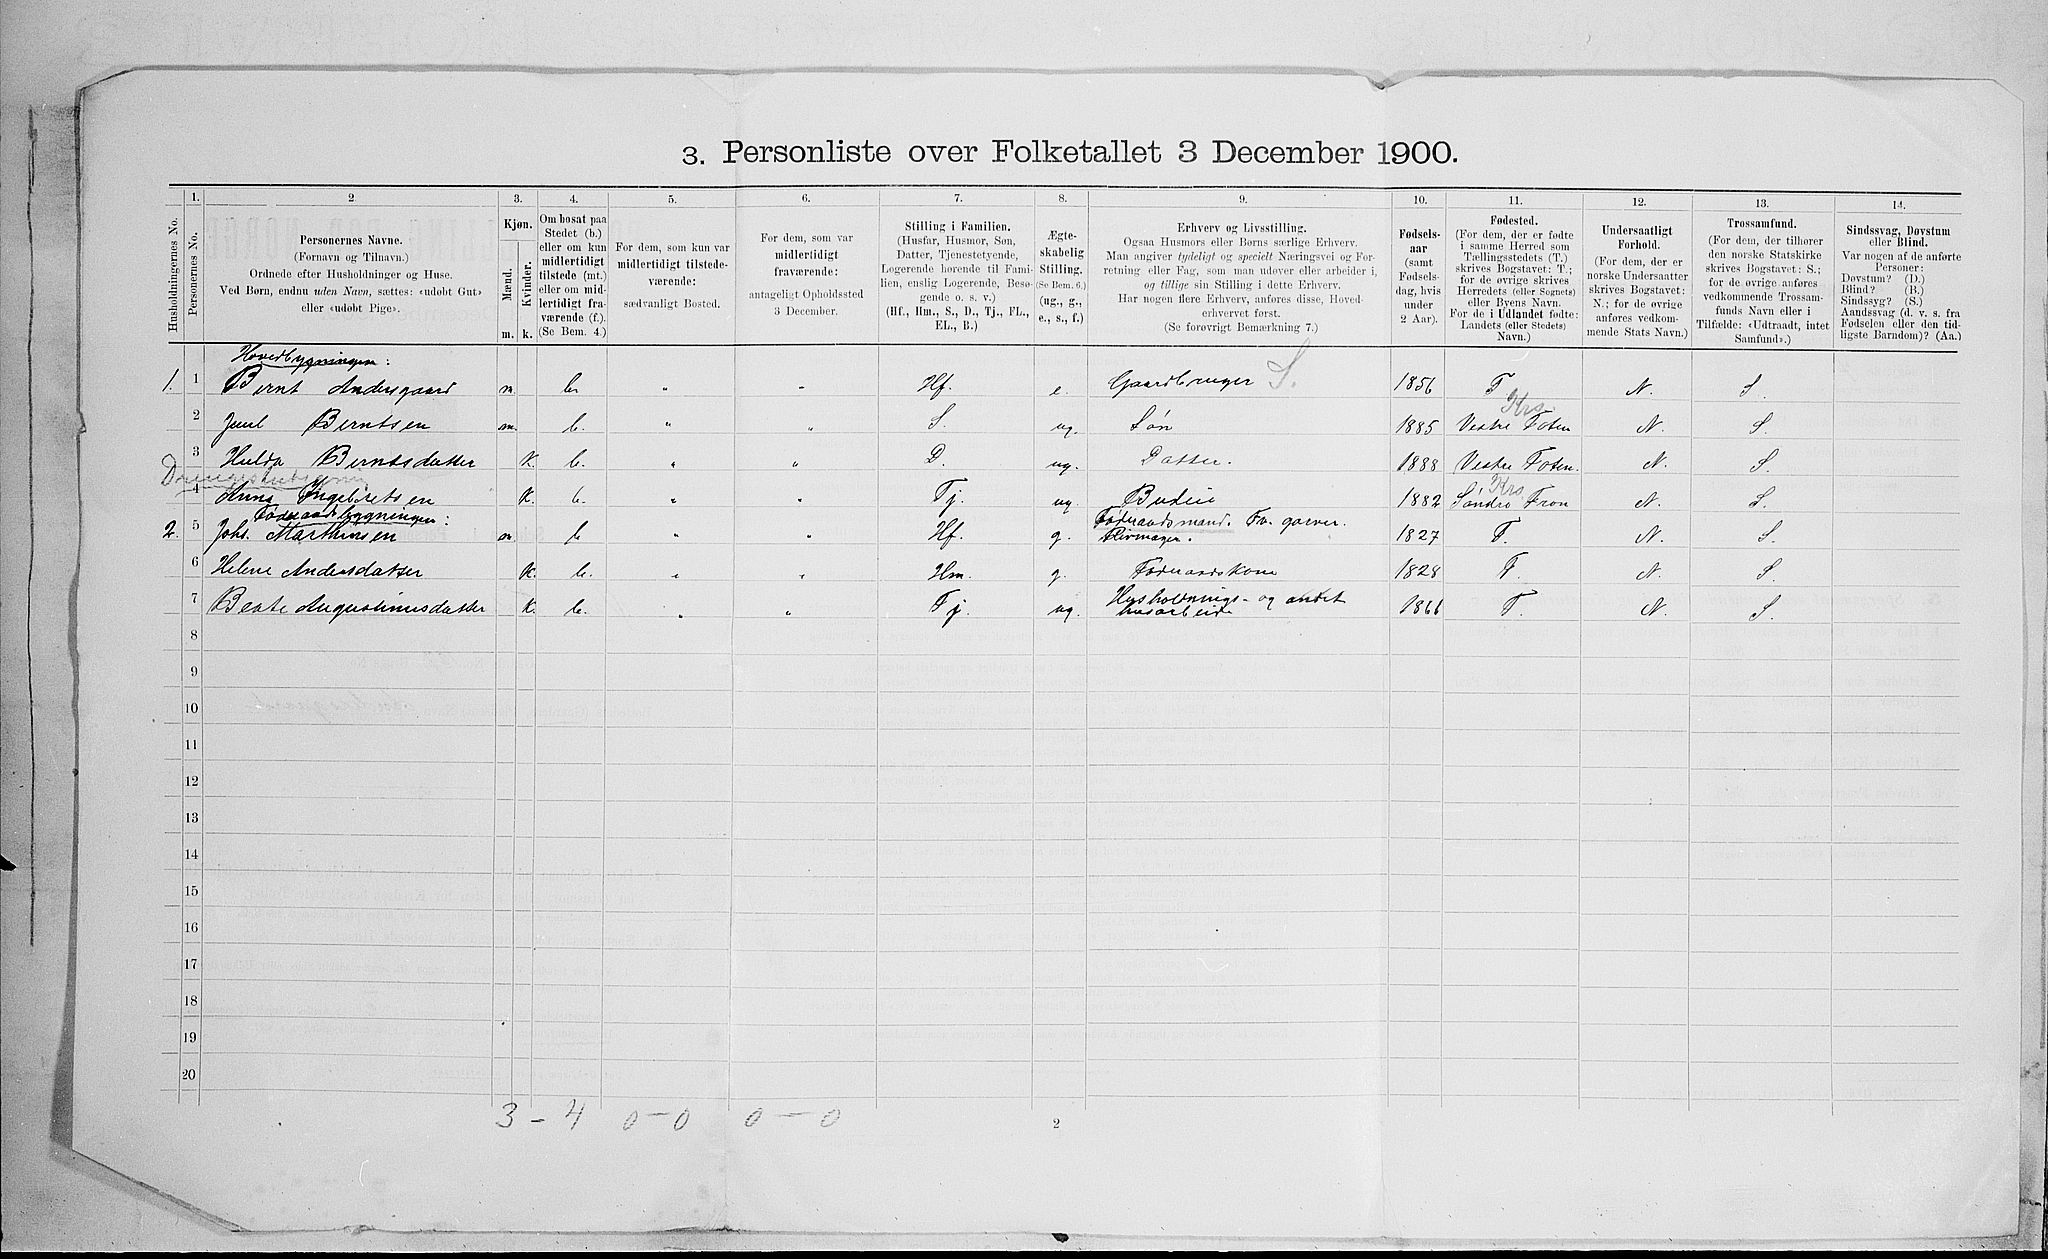 3. Personliste over Folketallet 3 December 1900.
Husholdningernes No.
1.
Personernes No.
2.
Personernes Navne.
(Fornavn og Tilnavn.)
Ordnede efter Husholdninger og Huse.
Ved Børn, endnu uden Navn, sættes: «udøbt Gut»
eller «udøbt Pige».
3.
Kjøn.
Mænd.
Kvinder.
m. k.
4.
Om bosat paa
Stedet (b.)
eller om kun
midlertidigt
tilstede (mt.)
eller om mid-
lertidigt fra-
værende (f.).
(Se Bem. 4.)
5.
For dem, som kun var
midlertidigt tilstede-
værende:
sædvanligt Bosted.
6.
For dem, som var
midlertidigt
fraværende:
antageligt Opholdssted
3 December.
7.
Stilling i Familien.
(Husfar, Husmor, Søn,
Datter, Tjenestetyende,
Logerende hørende til Fami-
lien, enslig Logerende, Besø-
gende o. s. v.)
(Hf., Hm., S., D., Tj., FL.,
EL., B.)
8.
Ægte-
skabelig
Stilling.
(Se Bem. 6.)
(ug., g.,
e., s., f.)
9.
Erhverv og Livsstilling.
Ogsaa Husmors eller Børns særlige Erhverv.
Man angiver tydeligt og specielt Næringsvei og For-
retning eller Fag, som man udover eller arbeider i,
og tillige sin Stilling i dette Erhverv.
Har nogen flere Erhverv, anføres disse, Hoved-
erhvervet først.
(Se forøvrigt Bemærkning 7.)
10.
Fødsels-
aar
(samt
Fødsels-
dag, hvis
under
2 Aar).
11.
Fødested.
(For dem, der er fødte
i samme Herred som
Tællingsstedets (T.)
skrives Bogstavet: T.;
for de øvrige skrives
Herredets (eller Sognets)
eller Byens Navn.
For de i Udlandet fødte:
Landets (eller Stedets)
Navn.)
12.
Undersaatligt
Forhold.
(For dem, der er
norske Undersaatter
skrives Bogstavet:
N.; for de øvrige
anføres vedkom-
mende Stats Navn.)
13.
Trossamfund.
(For dem, der tilhører
den norske Statskirke
skrives Bogstavet: S.;
for de øvrige anføres
vedkommende Trossam-
funds Navn eller i
Tilfælde: «Udtraadt, intet
Samfund».)
14.
Sindssvag, Døvstum
eller Blind.
Var nogen af de anførte
Personer:
Døvstum? (D.)
Blind? (B.)
Sindssyg? (S.)
Aandssvag (d. v. s. fra
Fødselen eller den tid-
ligste Barndom)? (Aa.)
Hovedbygningen:
1. 1 Bernt Andersgaard m. b. " " Hf. e. Gaardbruger S. 1856 T N. S.
Krs.
2 Juul Berntsen m. b. " " S. ug. Søn 1885 Vestre Toten N. S.
3 Hulda Berntsdatter k. b. " " D. ug. Datter. 1888 Vestre Toten. N. S.
Krs.
4 Anna Ingebretsen k. b. " " Tj. ug. Budeie 1882 Søndre Fron N. S.
Føderaadsbygningen:
2. 5 Johs. Marthinsen m. b " " Hf. g. Føderaadsmand. Fv. garver. 1827 T. N. S.
6 Helene Andersdatter k. b. " " Hm. g. Føderaadskone 1828 T. N. S.
7 Beate Augustinusdatter k. b. " " Tj. ug. Husholdnings- og andet 1866 T. N. S.
husarbeide
8
9
10
11
12
13
14
15
16
17
18
19
20
3 - 4 0 - 0 0 - 0
2